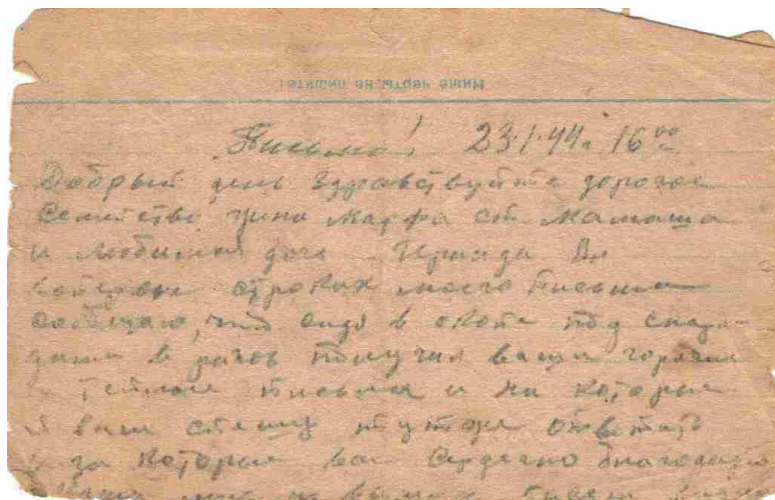 Ниже черты не пишите!
Письмо! 23.1.44 г. 16 00
Добрый день Здравствуйте дорогое
Семейство жена Марфа Мамаша
и любимая дочь
строках моего письма
сообщаю, что сидя в окопе под снаря-
дами получил ваши горячие
и теплые письма и на которые
я вам спешу тут же ответить
и за которые вас сердечно благодарю